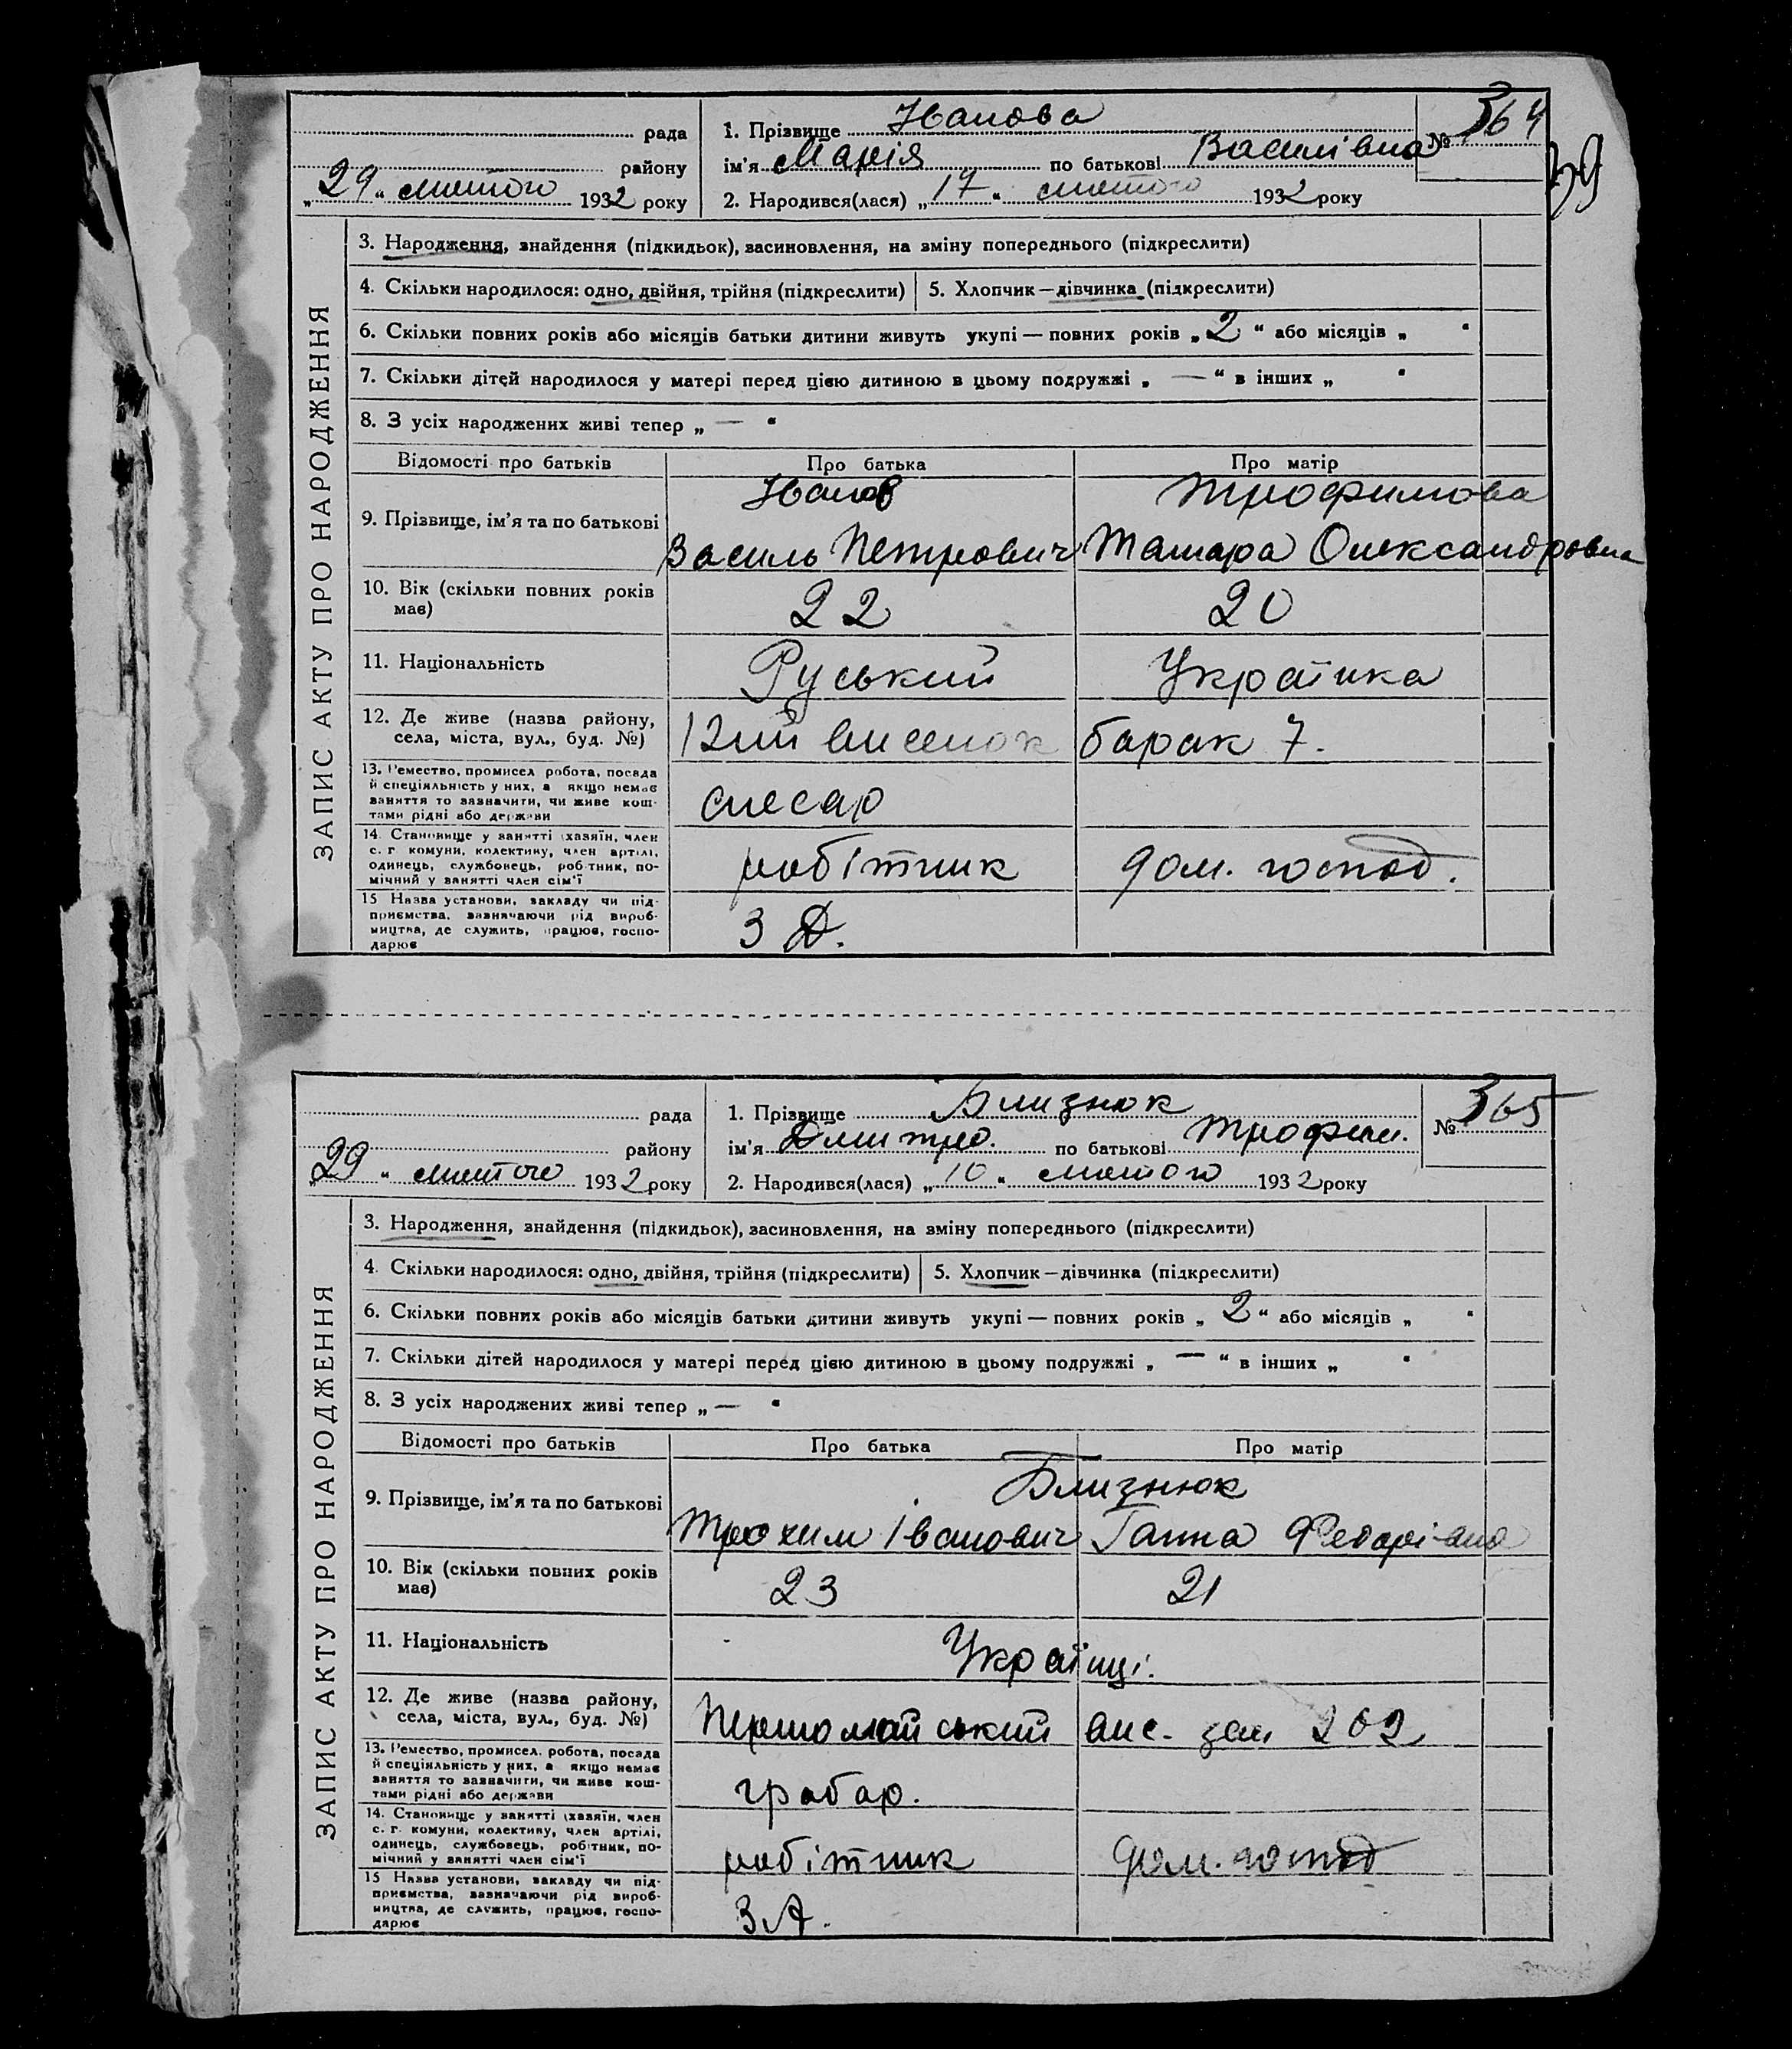 рада
району
„29“ лютого 1932 року
1. Прізвище Іванова
ім'я Марія по батькові Василівна
2. Народився(лася) „17“ лютого 1932 року
№ 364
39
ЗАПИС АКТУ ПРО НАРОДЖЕННЯ
3. Народження, знайдення (підкидьок), засиновлення, на зміну попереднього (підкреслити)
4. Скільки народилося: одно, двійня, трійня (підкреслити) 5. Хлопчик—дівчинка (підкреслити)
6. Скільки повних років або місяців батьки дитини живуть укупі — повних років „2“ або місяців „ “
7. Скільки дітей народилося у матері перед цією дитиною в цьому подружжі „—“ в інших „ “
8. З усіх народжених живі тепер „—“
Відомості про батьків Про батька Про матір
9. Прізвище, ім'я та по батькові
Іванов Трофимова
Василь Петрович Тамара Олександровна
10. Вік (скільки повних років
має)
22 20
11. Національність Руський Українка
12. Де живе (назва району,
села, міста, вул., буд. №)
12ий виселок барак 7.
13. Ремество, промисел робота, посада
й спеціяльність у них, а якщо немає
заняття то зазначити, чи живе кош-
тами рідні або держави
слесар
14. Становище у занятті (хазяїн, член
с. г. комуни, колективу, член артілі,
одинець, службовець, робітник, по-
мічний у занятті член сім'ї
робітник дом. господ.
15 Назва установи, закладу чи під-
приємства, зазначаючи рід вироб-
ництва, де служить, працює, госпо-
дарює
З Д.
рада
району
„29“ лютого 1932 року
1. Прізвище Близнюк
ім'я Дмитро. по батькові Трофим.
2. Народився(лася) „10“ лютого 1932 року
№ 365
ЗАПИС АКТУ ПРО НАРОДЖЕННЯ
3. Народження, знайдення (підкидьок), засиновлення, на зміну попереднього (підкреслити)
4. Скільки народилося: одно, двійня, трійня (підкреслити) 5. Хлопчик—дівчинка (підкреслити)
6. Скільки повних років або місяців батьки дитини живуть укупі — повних років „2“ або місяців „ “
7. Скільки дітей народилося у матері перед цією дитиною в цьому подружжі „—“ в інших „ “
8. З усіх народжених живі тепер „—“
Відомості про батьків Про батька Про матір
9. Прізвище, ім'я та по батькові
Близнюк
Трохим Іванович Ганна Федорівна
10. Вік (скільки повних років
має)
23 21
11. Національність Українці.
12. Де живе (назва району,
села, міста, вул., буд. №)
Першомайський вис. зем 202
13. Ремество, промисел. робота, посада
й спеціяльність у них, а якщо немає
заняття то зазначити, чи живе кош-
тами рідні або держави
грабар.
14. Становище у занятті (хазяїн, член
с. г. комуни, колективу, член артілі,
одинець, службовець, робітник, по-
мічний у занятті член сім'ї
робітник дом. господ
15 Назва установи, закладу чи під-
приємства, зазначаючи рід вироб-
ництва, де служить, працює, госпо-
дарює
З Д.